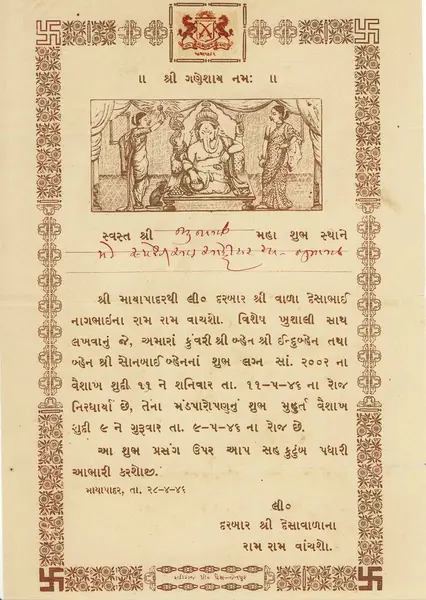 માયાપાદર
॥ શ્રી ગણેશાય નમઃ ॥
સ્વસ્ત શ્રી મહા શુભ સ્થાને
શ્રી માયાપાદરથી લી૦ દરબાર શ્રી વાળા દેસાભાઈ
નાગભાઈના રામ રામ વાચશો. વિશેષ ખુશાલી સાથ
લખવાનું જે, અમારાં કુંવરી શ્રી બ્હેન શ્રી ઈન્દુબ્હેન તથા
બ્હેન શ્રી સોનબાઈ બ્હેનનાં શુભ લગ્ન સાં. ૨૦૦૨ ના
વૈશાખ શુદી ૧૧ ને શનિવાર તા. ૧૧-૫-૪૬ ના રોજ
નિરધાર્યાં છે, તેના મંડપારોપણનું શુભ મુહુર્ત વૈશાખ
શુદી ૯ ને ગુરૂવાર તા. ૯-૫-૪૬ ના રોજ છે.
આ શુભ પ્રસંગ ઉપર આપ સહ કુટુંબ પધારી
આભારી કરશોજી.
માયાપાદર, તા. ૨૮-૪-૪૬
લી૦
દરબાર શ્રી દેસાવાળાના
રામ રામ વાંચશો.